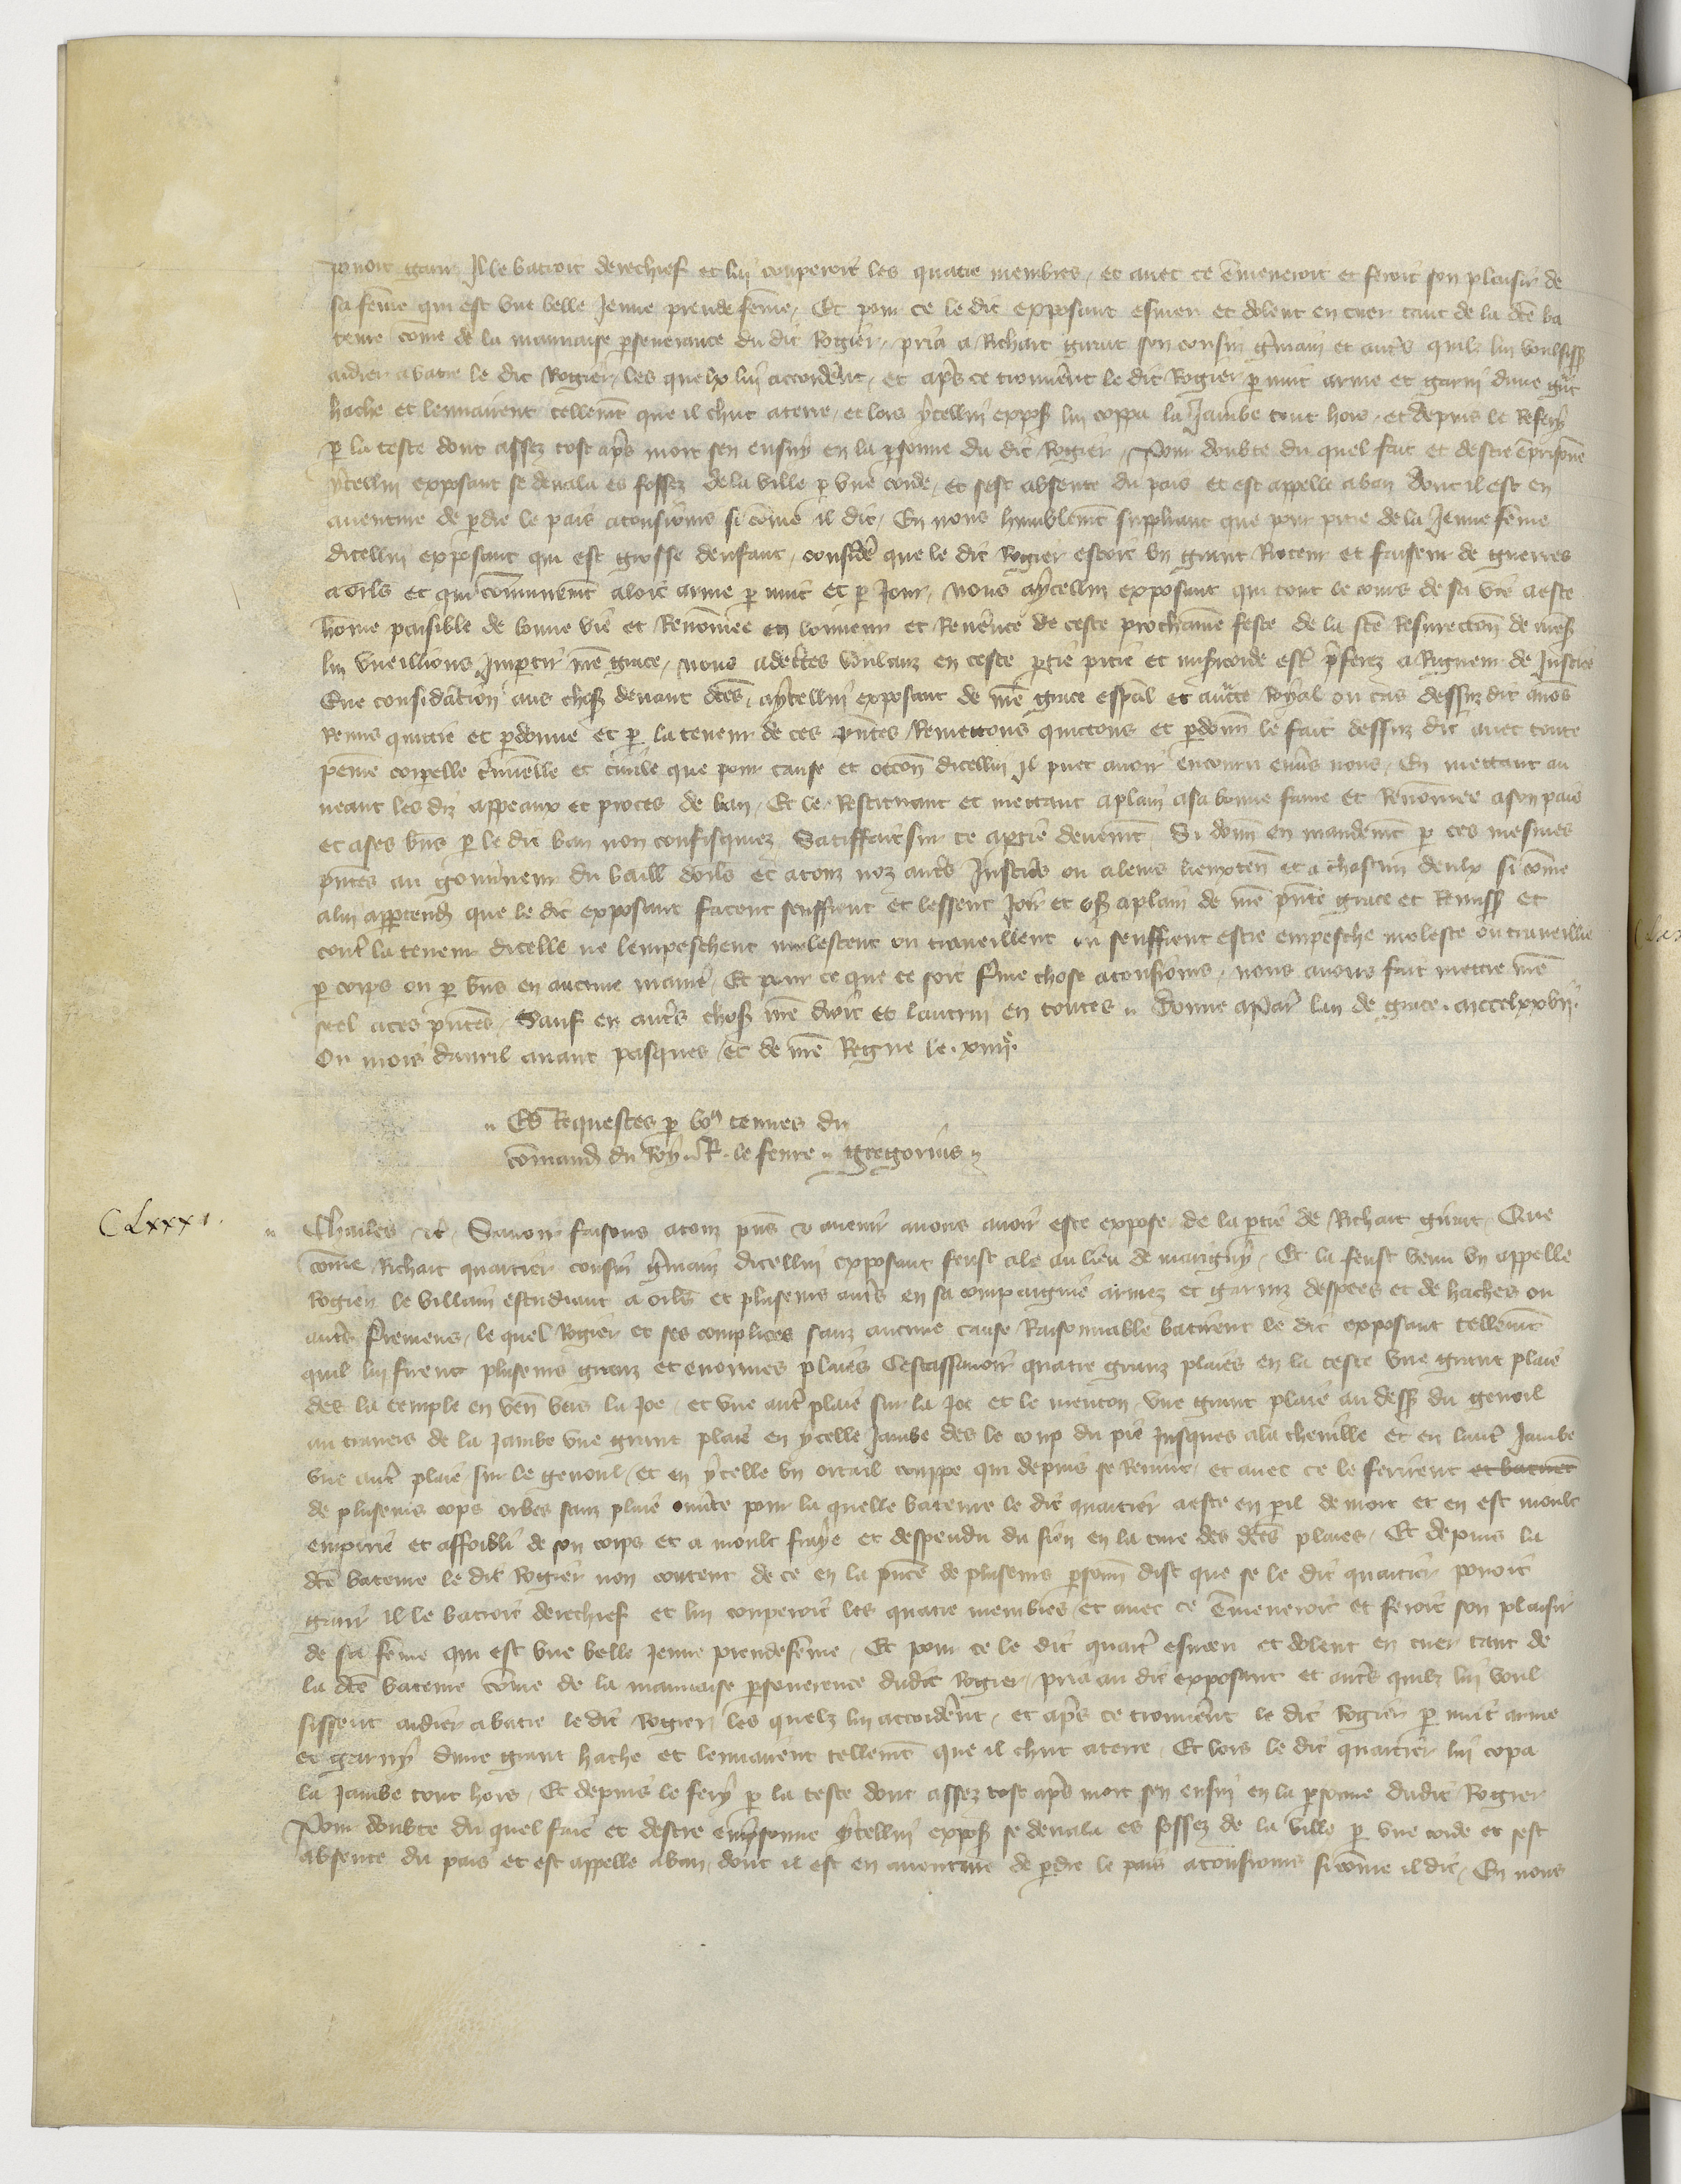 povoit garir Il le batroit derechief et lui couperoit les quatre membres, et avec ce ēmeneroit et feroit son plaisir de
sa fēme qui est une belle jeune preude fēme, Et pour ce le dit exposant esmeu et dolent en cuer tant de la dcē ba
teure cōme de la mauvaise pseverance du dit Rogier, pria a Richart girart son cousin gmain et autˢ quilz lui voulsissˢ
aidier a batre le dit Rogier, les quelx lui accordent, et apˢ ce trouvent le dit Rogier p nuit arme et garni dune gnt
hache et lenvaïrent tellemt que il chut a terre, et lors ycellui expoˢ lui coppa la Jambe tout hors, et depuis le Refery
p la teste dont assez tost apˢ mort sen ensuy en la psonne du dit Rogier, Pour doubte du quel fait et destre ēprisonē
ycellui exposant se devala es fossez de la ville p une corde, et sest absente du pais et est appelle a ban dont il est en
aventure de pdre le pais a tousiours si cōme il dit, En nous humblemt suppliant que pour pitie de la Jeune fēme
dicellui exposant qui est grosse denfant, considé que le dit Rogier estoit un grant Rioteur et faiseur de guerres
a orls et qui cōmunemt aloit arme p nuit et p Jour, nous a ycellui exposant qui tout le cours de sa vie a este
hōme paisible de bonne vie et Renōmee en lonneur et Revence de ceste prochaine feste de la stē Resurreccōn de nreˢ
lui vueillions Impartir nrē grace, nous adecrtes voulanz en ceste ptie pitie et misicorde estˢ pferez a Rigueur de Justice
Eue considacion aus choˢ devant dcēs, a ycellui exposant de nrē grace espāl et auctē Royal ou cas dessuz dit avōs
Remis quittie et pdonne et p la teneur de ces pntes Remettons quictons et pdonn le fait dessuz dit avec toute
peine corpelle cimnelle et civile que pour cause et occōn dicellui Il puet avoir encouru envˢ nous, En mettant au
neant les diz appeaux et proces de ban, Et le Restituant et mettant a plain a sa bonne fame et Renōmee a son pais
et a ses bns p le dit ban non confisquiez Satiffait sur ce a ptie deuemt Si donn en mandemt p ces mesmes
pntes au gouvneur du baill dorls et a touz noz autˢ Justicˢ ou a leurs lieuxtenˢ et a chascun deulx si cōme
a lui apptendˢ que le dit exposant facent seuffrent et lessent Joir et usˢ a plain de nrē pnte grace et Remissˢ et
contˢ la teneur dicelle ne lempeschent molestent ou traveillent ou seuffrent estre empesche moleste ou traveillie
p corps ou p bns en aucune maniˢ, Et pour ce que ce soit ferme chose a tousiours, nous avons fait mettre nrē
scel a ces pntes, Sauf en autˢ choˢ nrē droit et lautrui en toutes. Donne a Parˢ lan de grace mccclxxvii.
Ou mois davril avant pasques, et de nrē Regne le xiiiiᵉ.
Es Requestes p vous tenues du
cōmandˢ du Roy. R. le fevre. gregorius.
CLxxxi.
Charles &c. Savoir faisons a touz pns & avenir a nous avoir este expose de la ptie de Richart girart, Que
cōme Richart quartier cousin gmain dicellui exposant feust ale au lieu de marigny, Et la feust venu un appelle
Rogier le villain estudiant a orls et pluseurs autˢ en sa compaignie armez et garniz despees et de haches ou
autˢ ferremens, le quel Rogier et ses complices sanz aucune cause Raisonnable batirent le dit exposant tellemt
quil lui firent pluseurs granz et enormes plaies Cestassavoir quatre granz plaies en la teste une grant plaie
des la temple en venˢ vers la Joe, et une autˢ plaie sur la Joe et le menton, une grant plaie au dessˢ du genoil
au travers de la Jambe une grant plaie en ycelle Jambe des le coup du pie Jusques a la cheville et en lautˢ Jambe
une autˢ plaie sur le genoul, et en ycelle un orteil couppe qui depuis se Reunit, et avec ce le ferirent et batirent
de pluseurs cops orbes sanz plaie ouvte pour la quelle bateure le dit quartier a este en pil de mort et en est moult
empirie et affoibli de son corps et a moult fraye et despendu du sien en la cure des dcēs plaies, Et depuis la
dcē bateure le dit Rogier non content de ce en la pnce de pluseurs psonnˢ dist que se le dit quartier povoit
garir il le batroit derechief et lui couperoit les quatre membres, et avec ce ēmeneroit et feroit son plaisir
de sa fēme qui est une belle Jeune preudefēme, Et pour ce le dit quartˢ esmeu et dolent en cuer tant de
la dcē bateure cōme de la mauvaise pseverence dudit Rogier, pria au dit exposant et autˢ quilz lui voul
sissent aidier a batre le dit Rogier, les quelz lui accordent, et apˢ ce trouvent le dit Rogier p nuit arme
et garny dune grant hache et lenvaïrent tellemt que il chut a terre, Et lors le dit quartier lui copa
la Jambe tout hors, Et depuis le fery p la teste dont assez tost apˢ mort sen ensui en la psonne dudit Rogier
Pour doubte du quel fait et destre emprisonne ycellui expoˢ se devala es fossez de la ville p une corde et sest
absente du pais et est appelle a ban, dont il est en aventure de pdre le pais a tousiours si cōme il dit, En nous